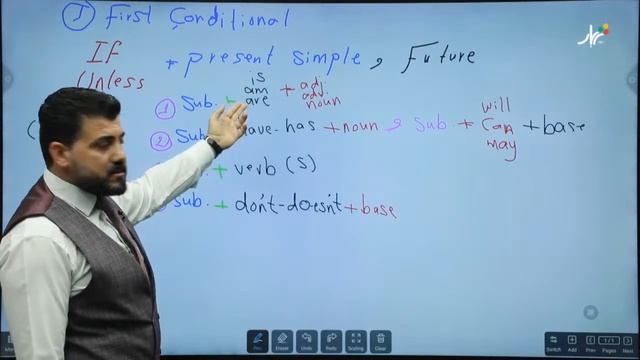 1 First Conditional
If + present simple , Future
Unless
is
am
are
+ adj.
adv.
noun
1 Sub. +
2 Sub. have - has + noun , sub + will
can
may
+ base
+ verb (s)
sub. + don't - doesn't + base
Pen Eraser Undo Redo Scaling Clear
Switch Add Prev 1/1 Next
Pages